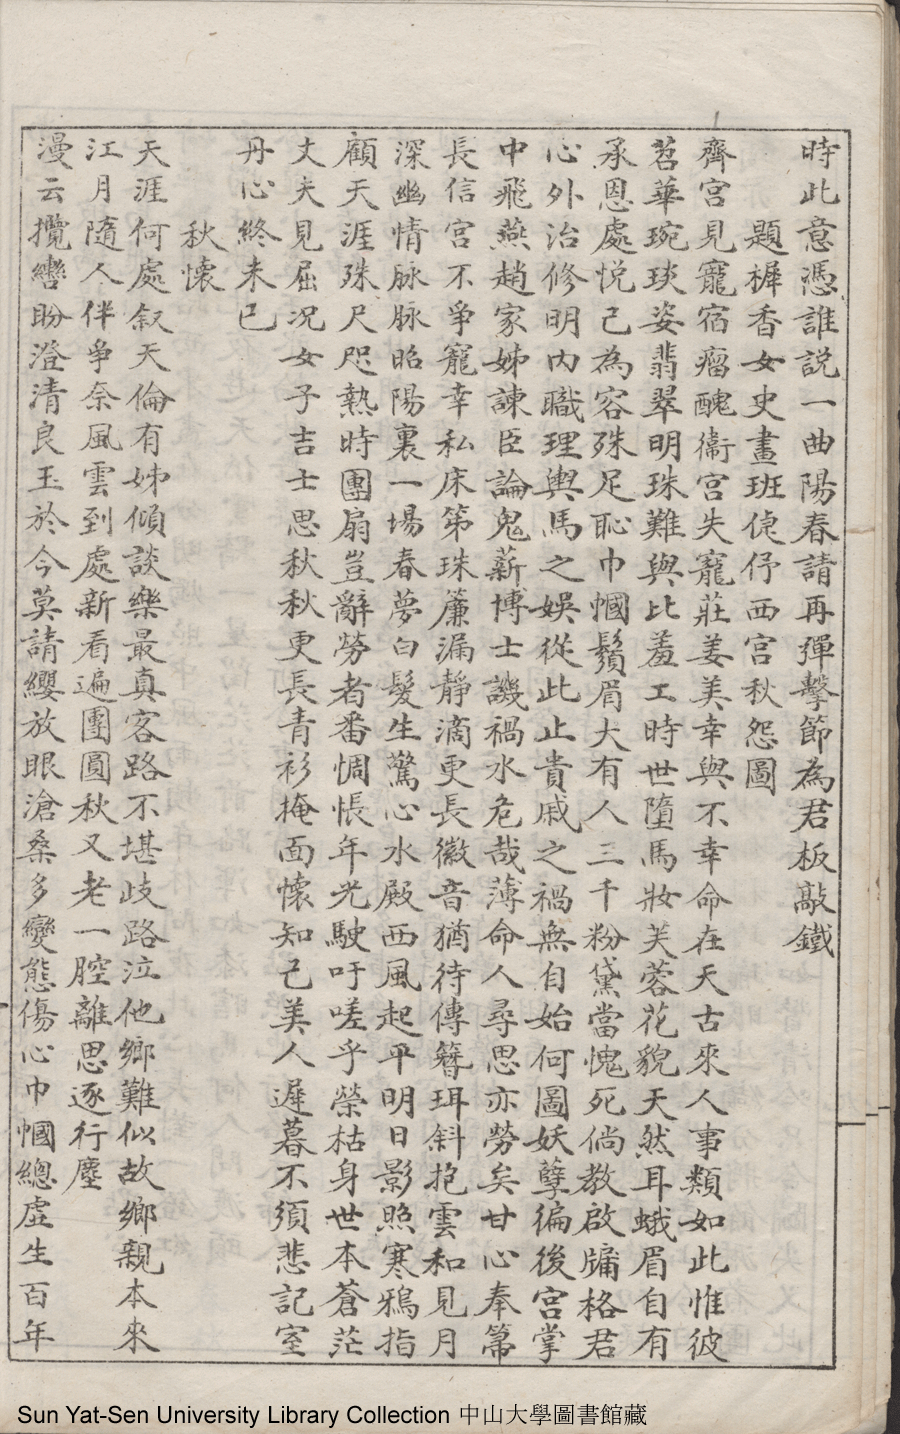 時此意憑誰説一曲陽春請再彈擊節為君板敲鐵
題樨香女史畫班倢伃西宮秋怨圖
齊宮見寵宿瘤醜衞宮失寵莊姜美幸與不幸命在天古來人事類如此惟彼
苕華琬琰姿翡翠明珠難與比羞工時世墮馬妝芙蓉花貌天然耳蛾眉自有
承恩處悦己為容殊足恥巾幗鬚眉大有人三千粉黛當愧死倘教啟牖格君
心外治修明内職理輿馬之娛從此止貴戚之禍無自始何圖妖孽徧後宮掌
中飛燕趙家姊諫臣論鬼薪博士譏禍水危哉薄命人尋思亦勞矣甘心奉箒
長信宮不爭寵幸私床笫珠簾漏靜滴更長徽音猶待傳簪珥斜抱雲和見月
深幽情脉脉昭陽裏一場春夢白髮生驚心水殿西風起平明日影照寒鴉指
顧天涯殊尺咫熱時團扇豈辭勞者番惆悵年光駛吁嗟乎榮枯身世本蒼茫
丈夫見屈况女子吉士思秋秋更長青衫掩面懷知己美人遲暮不須悲記室
丹心終未已
秋懷
天涯何處叙天倫有姊傾談樂最真客路不堪歧路泣他鄉難似故鄉親本來
江月隨人伴爭奈風雲到處新看遍團圓秋又老一腔離思逐行塵
漫云攬轡盼澄清良玉於今莫請纓放眼滄桑多變態傷心巾幗總虛生百年
Sun Yat-Sen University Library Collection 中山大學圖書館藏